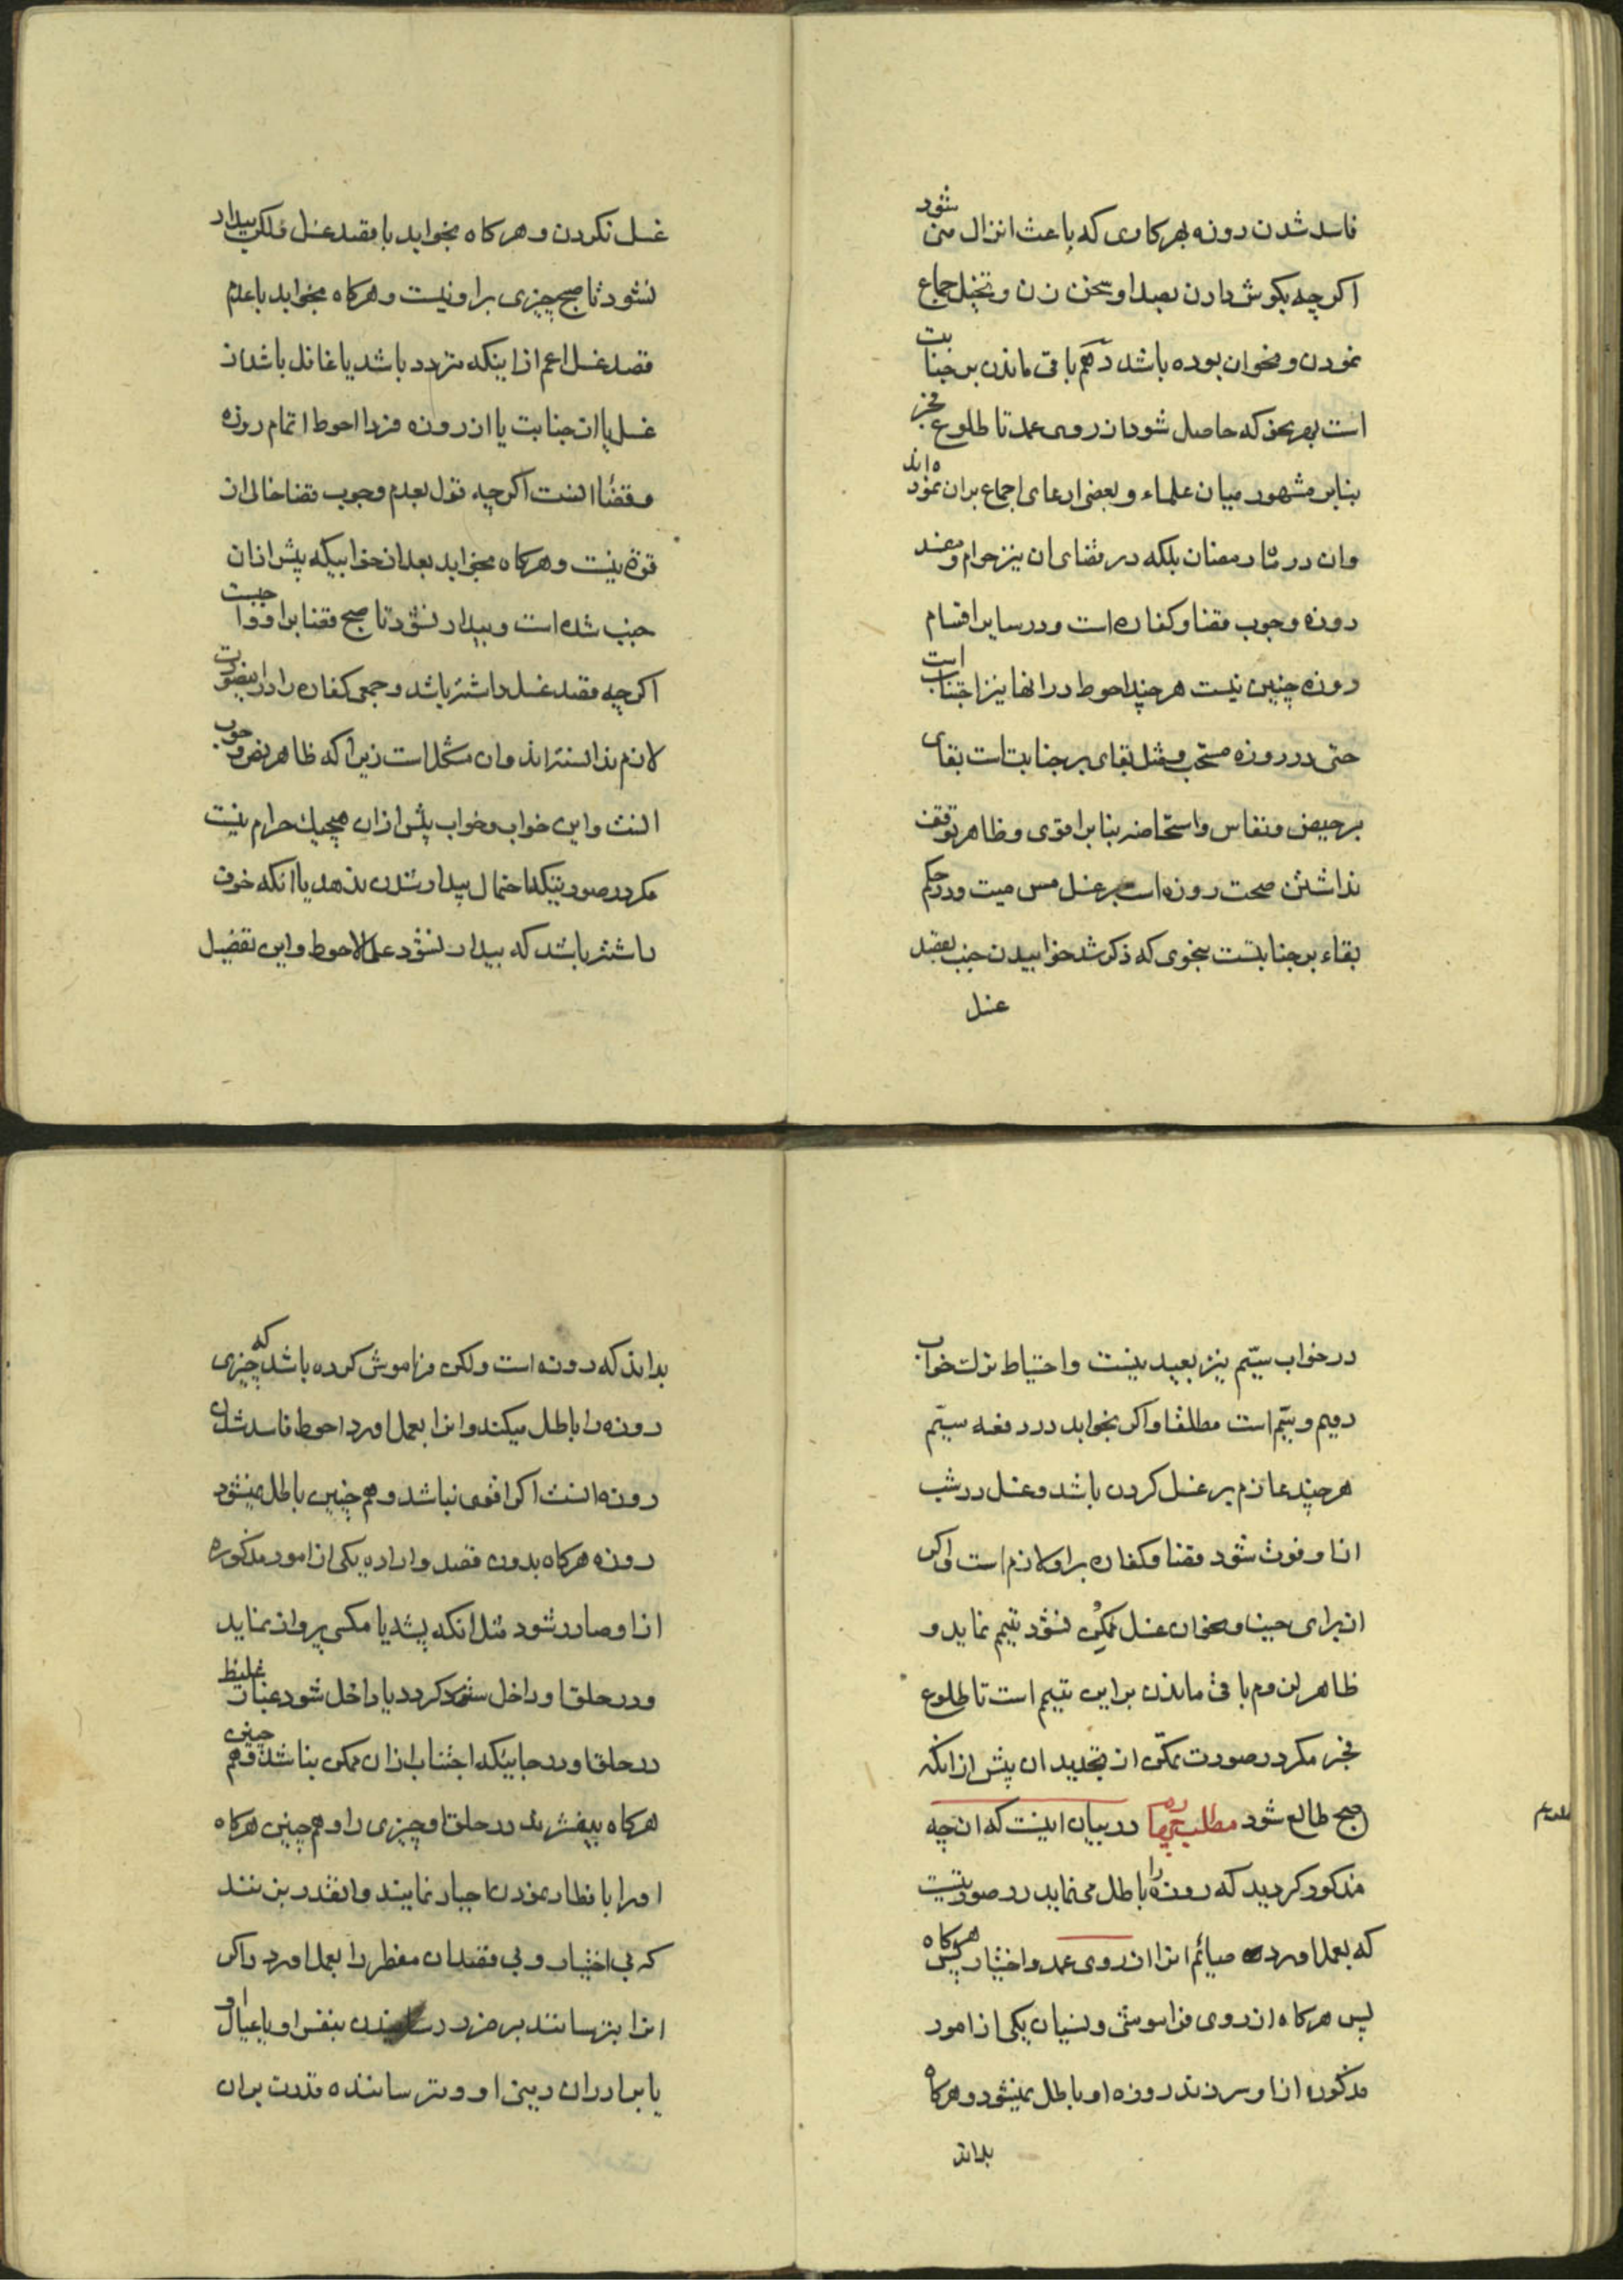 فاسد شدن روزه بهر کاری که باعث انزال منی شود
اکرچه بکوش دادن بصدا و سخن زن و تخیل جماع
نمودن و نحو ان بوده باشد دهم باقی ماندن بر جنابت
است بهر نحو که حاصل شود از روی عمد تا طلوع فجر
بنابر مشهور میان علماء و بعضی ادعای اجماع بران نموده اند
وان در ماه رمضان بلکه در قضای ان نیز حرام و مفسد
روزه و موجب قضا و کفاره است و در سایر اقسام
روزه چنین نیست هر چند احوط در انها نیز اجتناب است
حتی در روزه مستحب و مثل بقای بر جنابت است بقای
بر حیض و نفاس و استحاضه بنابر اقوی و ظاهر توقف
نداشتن صحت روزه است بر غسل مس میت و در حکم
بقاء بر جنابتست بنحوی که ذکر شد خوابیدن جنب بقصد
غسل
غسل نکردن و هرکاه بخوابد با قصد غسل ولکن بیدار
نشود تا صبح چیزی بر او نیست و هرکاه بخوابد با عدم
قصد غسل اعم از اینکه متردد باشد یا غافل باشد از
غسل یا از جنابت یا از روزه فردا احوط اتمام روزه
و قضاء انست اکرچه قول بعدم وجوب قضا خالی از
قوة نیست و هرکاه بخوابد بعد از خوابیکه پیش از ان
جنب شده است و بیدار نشود تا صبح قضا بر او واجبست
اکرچه قصد غسل داشته باشد و جمعی کفاره را در اینصورت
لازم ندانسته اند و ان مشکل است زیرا که ظاهر نص وجوب
انست و این خواب و خواب پیش از ان هیچیک حرام نیست
مکر در صورتیکه احتمال بیدار شدن ندهد یا انکه خوف
داشته باشد که بیدار نشود علی الاحوط و این تفصیل
در خواب سیّم نیز بعید نیست و احتیاط ترک خواب
دویم و سیّم است مطلقا و اکر بخوابد در دفعه سیّم
هر چند عازم بر غسل کردن باشد و غسل در شب
از او فوت شود قضا و کفاره بر او لازم است و اکر
از برای جنب و نحو ان غسل ممکن نشود تیمم نماید و
ظاهر لزوم باقی ماندن بر این تیمم است تا طلوع
فجر مکر در صورت تمکّن از تجدید ان پیش از انکه
صبح طالع شود مطلب چهارم در بیان اینست که انچه
مذکور کردید که روزه را باطل می نماید در صورتیست
که بعمل اورد صائم انرا از روی عمد و اختیار پس هرکاه
پس هرکاه از روی فراموشی و نسیان یکی از امور
مذکوره از او سر زند روزه او باطل نمیشود و هرکاه
بداند
بداند که روزه است ولکن فراموش کرده باشد که چیزی
روزه را باطل میکند و انرا بعمل اورد احوط فاسد شدن
روزه انست اکر اقوی نباشد و هم چنین باطل نمیشود
روزه هرکاه بدون قصد و اراده یکی از امور مذکوره
از او صادر شود مثل انکه پشه یا مکسی پرواز نماید
و در حلق او داخل کردد یا داخل شود غبار غلیظ
در حلق او در جاییکه اجتناب از ان ممکن نباشد و هم چنین
هرکاه بیفشرند در حلق او چیزی را و هم چنین هرکاه
او را بافطار نمودن اجبار نمایند و انقدر بزنند
که بی اختیار و بی قصد ان مفطر را بعمل اورد و اکر
انرا بترسانند بر ضرر رسانیدن بنفس او یا عیال او
یا برادران دینی او و ترساننده قدرت بران